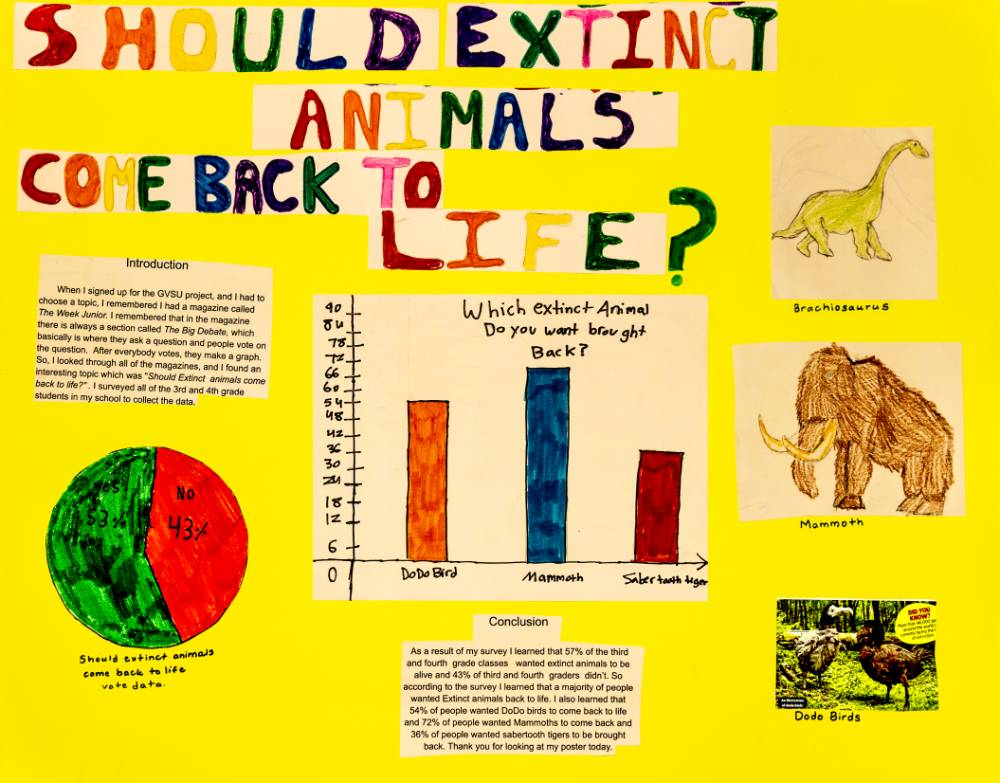 SHOULD EXTINCT
ANIMALS
COME BACK TO
LIFE?
Introduction
When I signed up for the GVSU project, and I had to
choose a topic, I remembered I had a magazine called
The Week Junior. I remembered that in the magazine
there is always a section called The Big Debate, which
basically is where they ask a question and people vote on
the question. After everybody votes, they make a graph.
So, I looked through all of the magazines, and I found an
interesting topic which was "Should Extinct animals come
back to life?". I surveyed all of the 3rd and 4th grade
students in my school to collect the data.
Yes
53%
No
43%
Should extinct animals
come back to life
vote data.
Which extinct Animal
Do you want brought
Back?
90
84
78
72
66
60
54
48
42
36
30
24
18
12
6
0
DoDo Bird
Mammoth
Saber tooth tiger
Conclusion
As a result of my survey I learned that 57% of the third
and fourth grade classes wanted extinct animals to be
alive and 43% of third and fourth graders didn't. So
according to the survey I learned that a majority of people
wanted Extinct animals back to life. I also learned that
54% of people wanted DoDo birds to come back to life
and 72% of people wanted Mammoths to come back and
36% of people wanted sabertooth tigers to be brought
back. Thank you for looking at my poster today.
Brachiosaurus
Mammoth
DID YOU
KNOW?
An illustration
of dodo birds
Dodo Birds